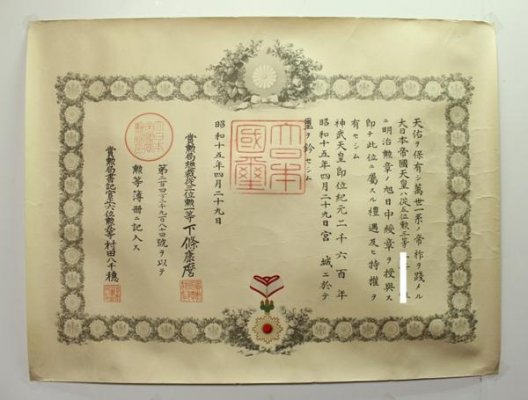 天佑ヲ保有シ萬世一系ノ帝祚ヲ踐メル
大日本帝國天皇ハ從五位勲三等
ニ明治勲章ノ旭日中綬章ヲ授與ス
即チ此位ニ屬スル禮遇及ヒ特權ヲ
有セシム
神武天皇即位紀元二千六百年
昭和十五年四月二十九日宮城ニ於テ
璽ヲ鈐セシム
大日本
國璽
昭和十五年四月二十九日
賞勲局總裁從三位勲一等下條康麿
第二百四十三萬九千八百八十四號ヲ以テ
勲等簿冊ニ記入ス
賞勲局書記官正六位勲六等村田八千穗